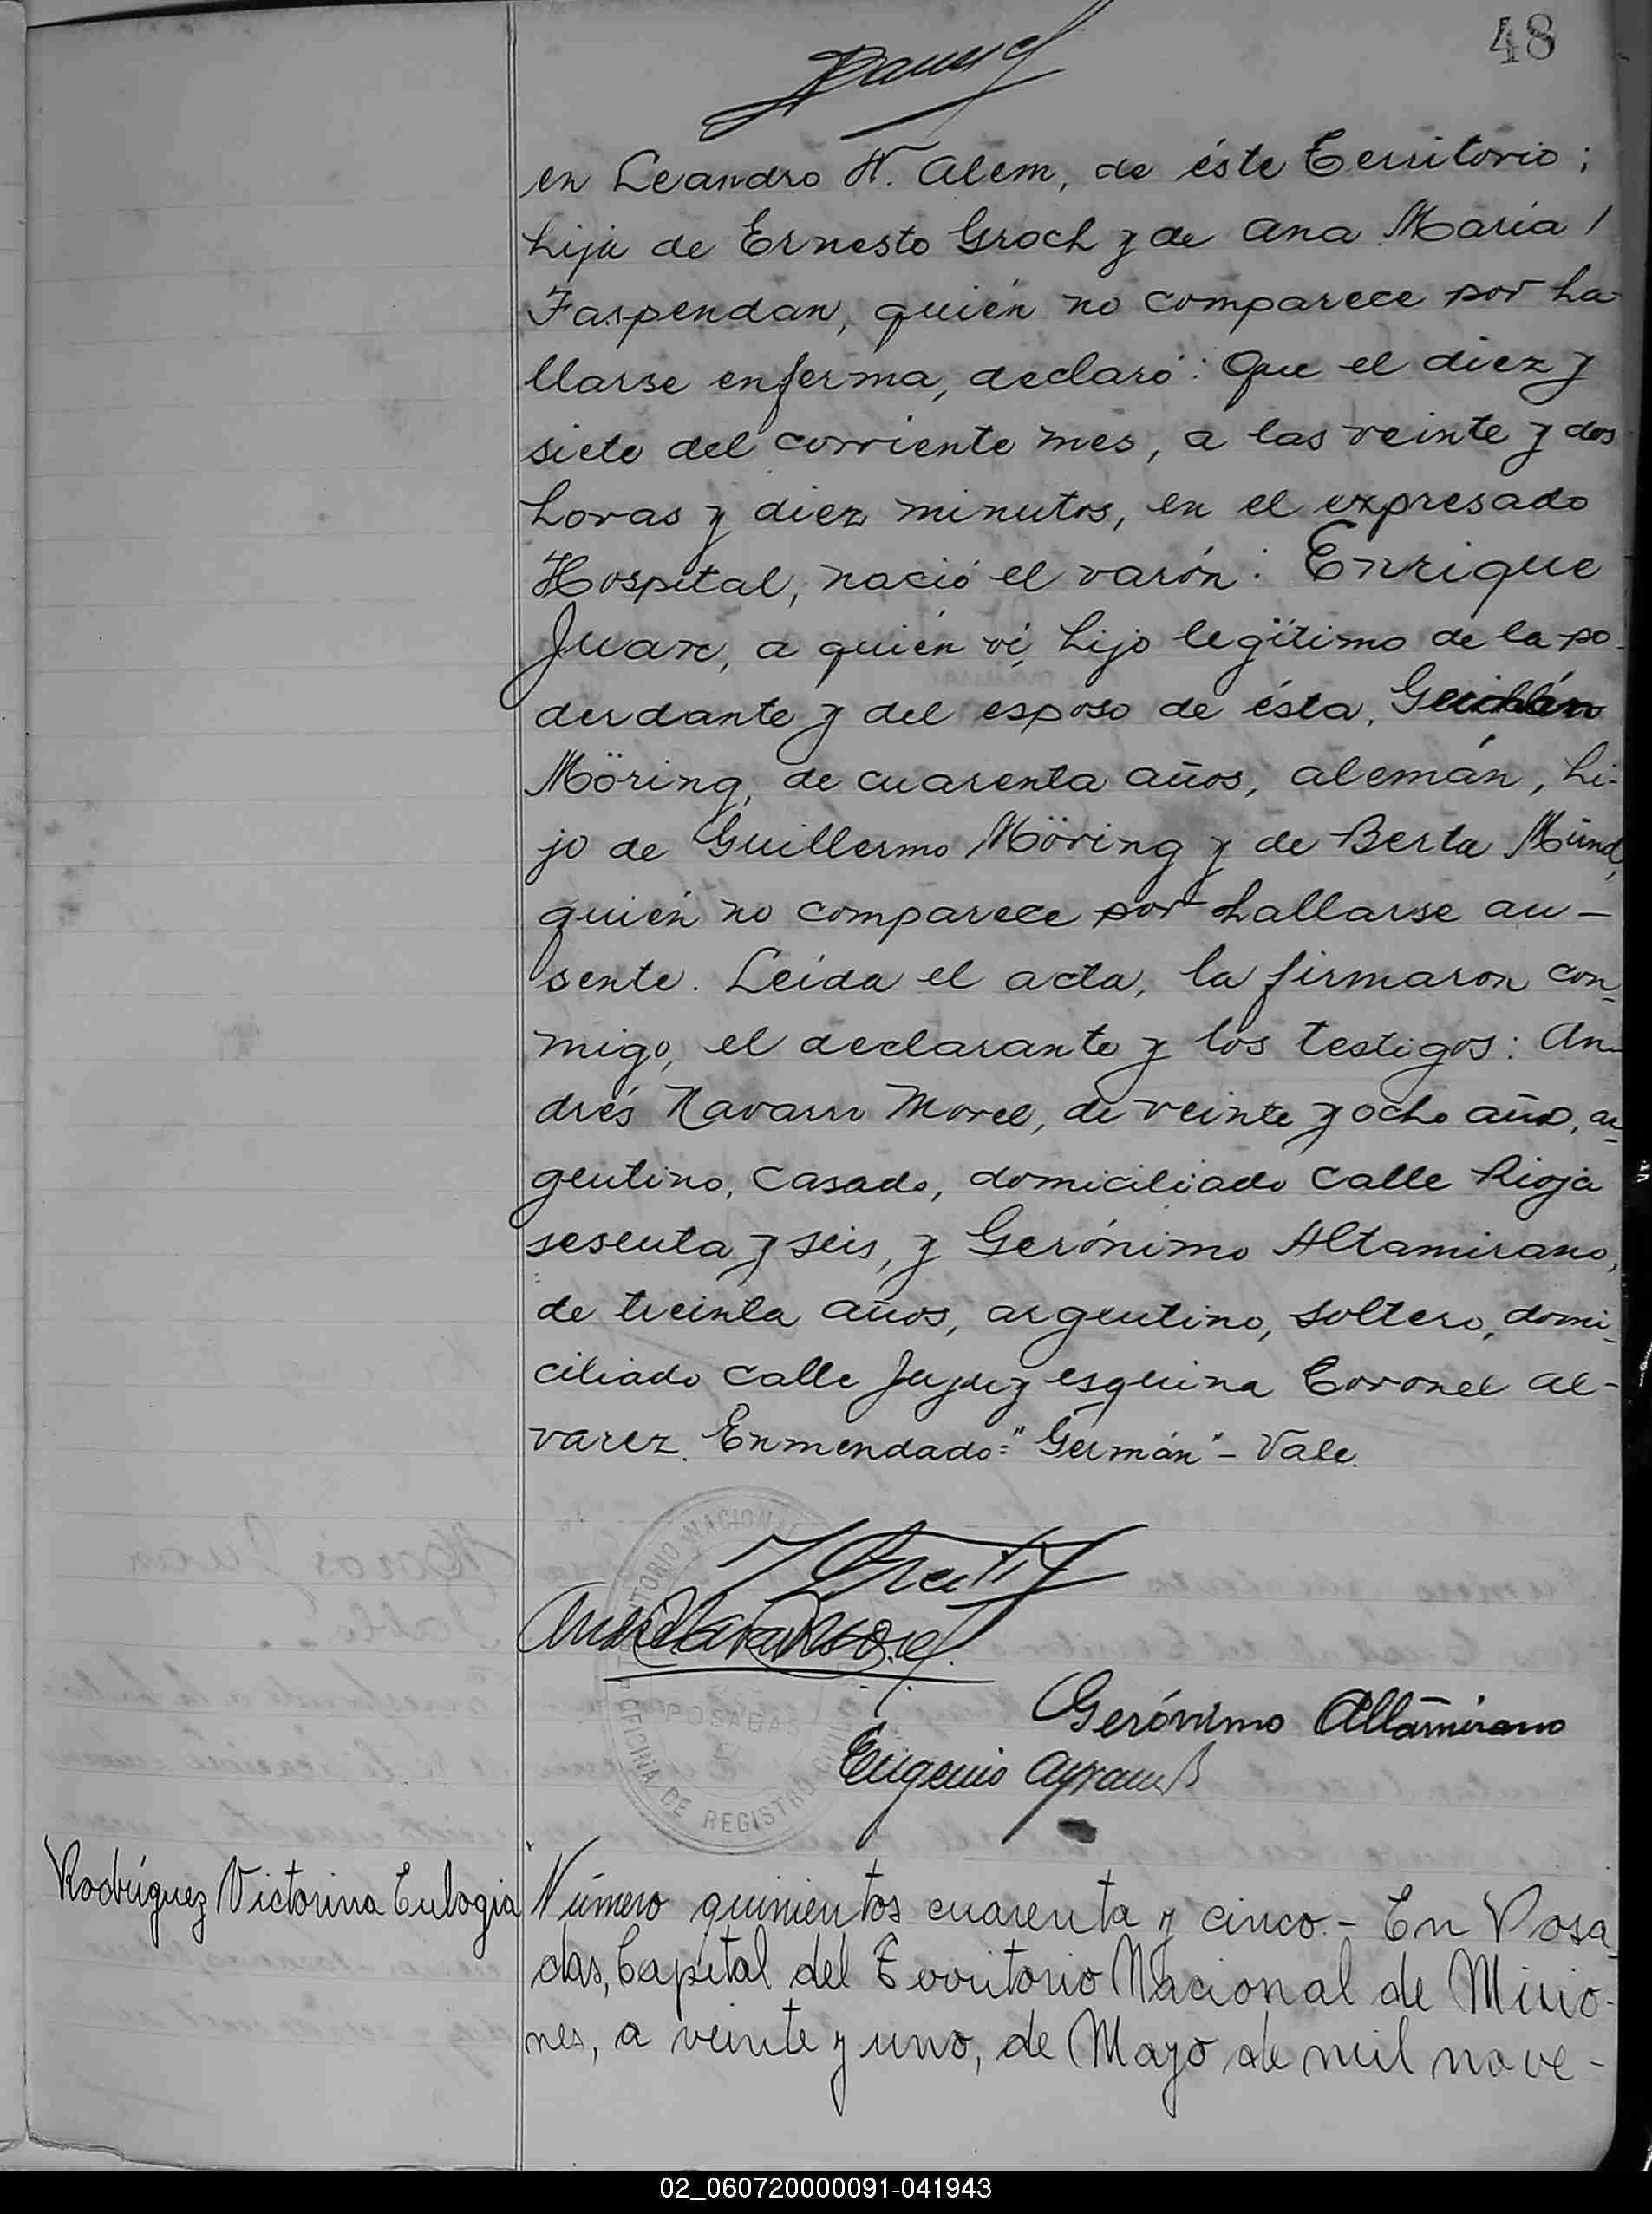 48
en Leandro N. Alem, de éste Territorio;
hija de Ernesto Groch y de Ana María /
Faspendan, quién no comparece por ha-
llarse enferma, declaró: Que el diez y
siete del corriente mes, a las veinte y dos
horas y diez minutos, en el expresado
Hospital, nació el varón: Enrique
Juan, a quién ví, hijo legítimo de la po-
derdante y del esposo de ésta,
Möring, de cuarenta años, alemán, hi-
jo de Guillermo Möring y de Berta Münd,
quién no comparece por hallarse au-
sente. Leída el acta, la firmaron con-
migo, el declarante y los testigos: An-
drés Navarro Morel, de veinte y ocho años, ar-
gentino, casado, domiciliado calle Rioja
sesenta y seis, y Gerónimo Altamirano,
de treinta años, argentino, soltero, domi-
ciliado calle Jujuy esquina Coronel Al-
varez. Enmendado="Germán"- Vale.
TERRITORIO NACIONAL
POSADAS
OFICINA DE REGISTRO CIVIL
Gerónimo Altamirano
Eugenio
Rodríguez Victorina Eulogia
Número quinientos cuarenta y cinco.- En Posa-
das, Capital del Territorio Nacional de Misio-
nes, a veinte y uno, de Mayo de mil nove-
02_060720000091-041943